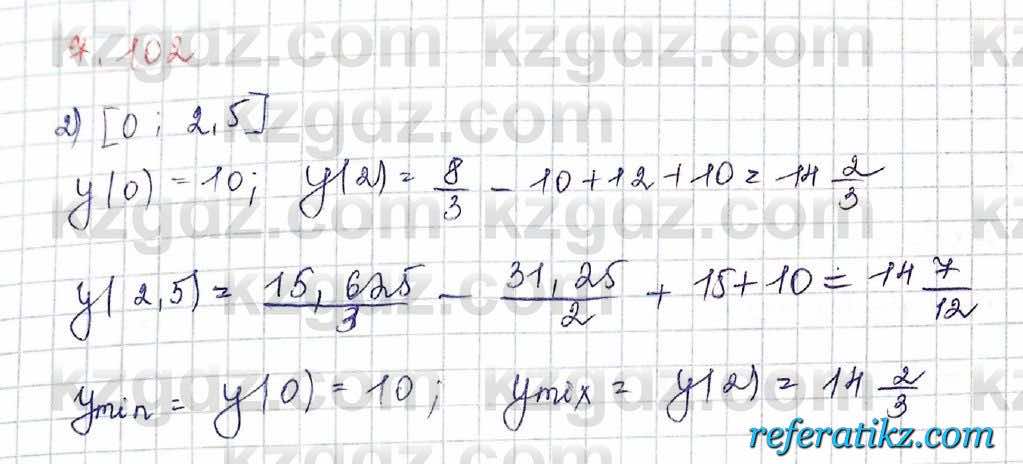 7.102
2) [0; 2,5]
y(0) = 10; y(2) = 8/3 - 10 + 12 + 10 = 14 2/3
y(2,5) = 15,625/3 - 31,25/2 + 15 + 10 = 14 7/12
ymin = y(0) = 10; ymix = y(2) = 14 2/3
kzgdz.com kzgdz.com
kzgdz.com
kzgdz.com kzgdz.com
kzgdz.com
kzgdz.com kzgdz.com
referatikz.com